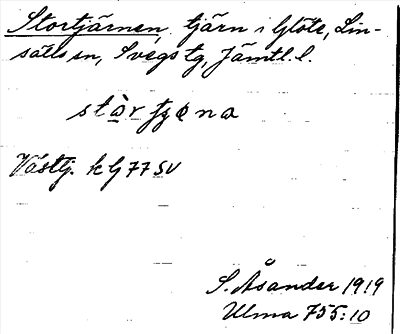 Stortjärnen tjärn i Glöte, Lin-
sälls sn, Svegs tg, Jämtl. l.
stàrtʒøna
Västj. k bj 77 SV
S. Åsander 1919
Ulma 755:10